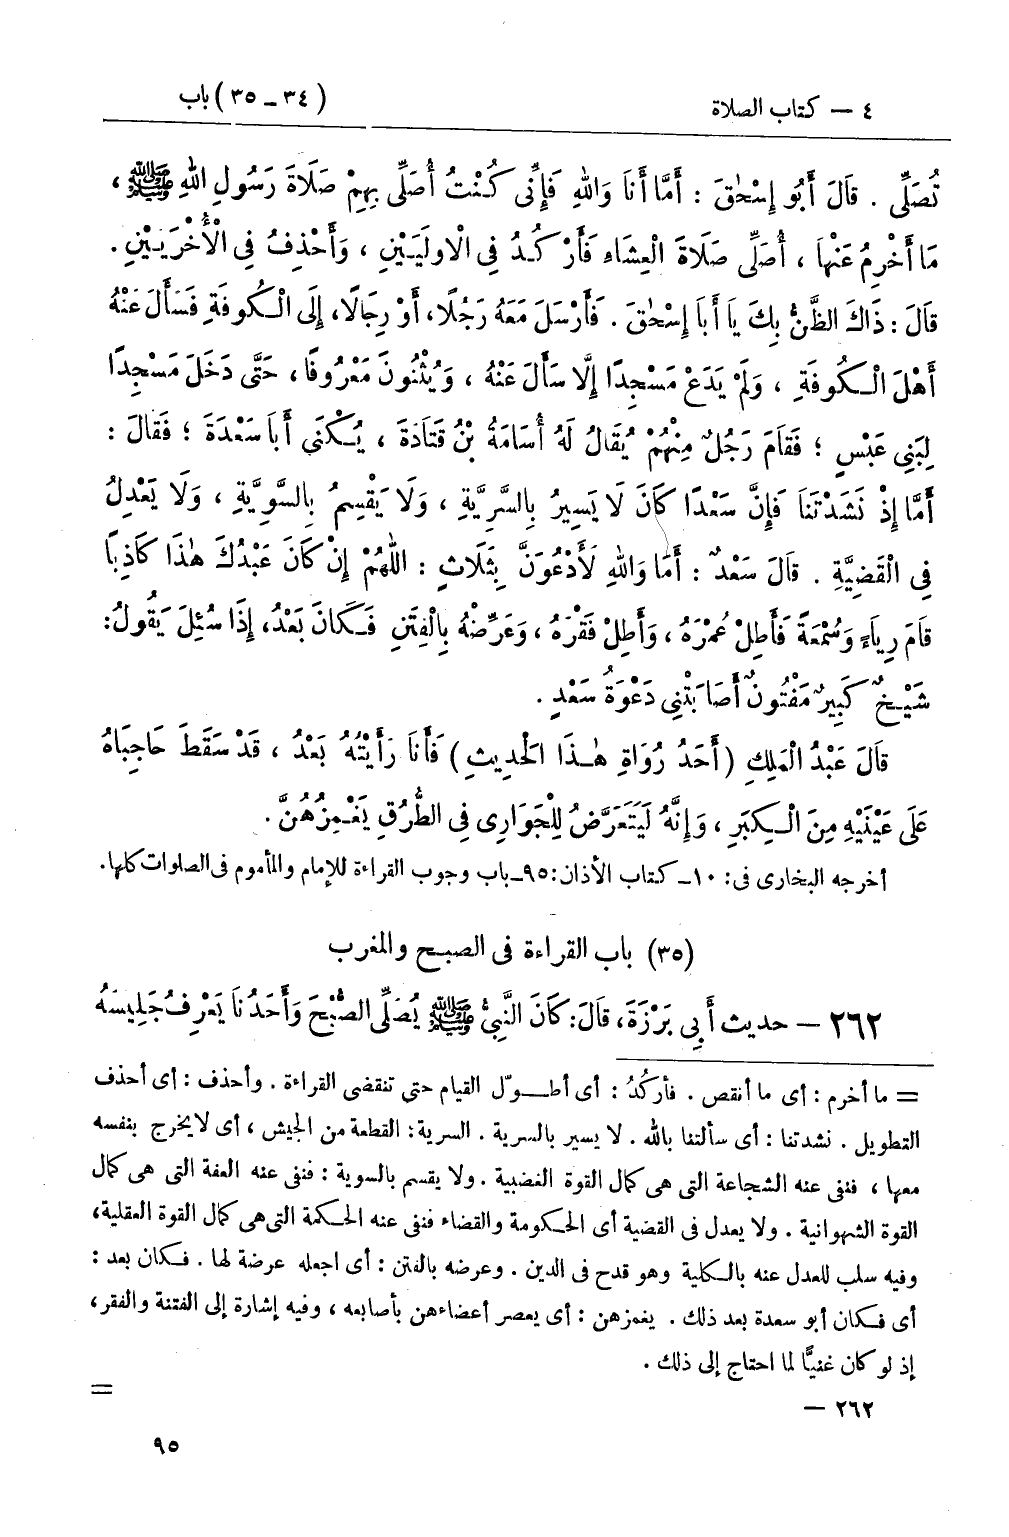 ٤ — كتاب الصلاة
(٣٤ ـ ٣٥) باب
تُصَلِّى . قَالَ أَبُو إِسْحٰقَ : أَمَّا أَنَا وَاللهِ فَإِنِّى كُنْتُ أُصَلِّى بِهِمْ صَلَاةَ رَسُولِ اللهِ ﷺ ،
مَا أَخْرِمُ عَنْهَا ، أُصَلِّى صَلَاةَ الْعِشَاءِ فَأَرْكُدُ فِى الْاولَيَيْنِ ، وَأَحْذِفُ فِى الْأُخْرَيَيْنِ .
قَالَ : ذَاكَ الظَّنُّ بِكَ يَا أَبَا إِسْحٰقَ . فَأَرْسَلَ مَعَهُ رَجُلًا، أَوْ رِجَالًا، إِلَى الْكُوفَةِ فَسَأَلَ عَنْهُ
أَهْلَ الْكُوفَةِ ، وَلَمْ يَدَعْ مَسْجِدًا إِلَّا سَأَلَ عَنْهُ ، وَيُثْنُونَ مَعْرُوفًا ، حَتَّى دَخَلَ مَسْجِدًا
لِبَنِى عَبْسٍ ؛ فَقَامَ رَجُلٌ مِنْهُمْ يُقَالُ لَهُ أُسَامَةُ بْنُ قَتَادَةَ ، يُكْنَى أَبَا سَعْدَةَ ؛ فَقَالَ :
أَمَّا إِذْ نَشَدْتَنَا فَإِنَّ سَعْدًا كَانَ لَا يَسِيرُ بِالسَّرِيَّةِ ، وَلَا يَقْسِمُ بِالسَّوِيَّةِ ، وَلَا يَعْدِلُ
فِى الْقَضِيَّةِ . قَالَ سَعْدٌ : أَمَا وَاللهِ لَأَدْعُوَنَّ بِثَلَاثٍ : اللّٰهُمَّ إِنْ كَانَ عَبْدُكَ هٰذَا كَاذِبًا
قَامَ رِيَاءً وَسُمْعَةً فَأَطِلْ عُمْرَهُ ، وَأَطِلْ فَقْرَهُ ، وَعَرِّضْهُ بِالْفِتَنِ فَكَانَ بَعْدُ، إِذَا سُئِلَ يَقُولُ:
شَيْخٌ كَبِيرٌ مَفْتُونٌ أَصَابَتْنِى دَعْوَةُ سَعْدٍ .
قَالَ عَبْدُ الْمَلِكِ (أَحَدُ رُوَاةِ هٰذَا الْحَدِيثِ) فَأَنَا رَأَيْتُهُ بَعْدُ ، قَدْ سَقَطَ حَاجِبَاهُ
عَلَى عَيْنَيْهِ مِنَ الْكِبَرِ ، وَإِنَّهُ لَيَتَعَرَّضُ لِلْجَوَارِى فِى الطُّرُقِ يَغْمِزُهُنَّ .
أخرجه البخارى فى: ١٠ـ كتاب الأذان: ٩٥ـ باب وجوب القراءة للإمام والمأموم فى الصلوات كلها.
(٣٥) باب القراءة فى الصبح والمغرب
٢٦٢ — حديث أَبِى بَرْزَةَ، قَالَ: كَانَ النَّبِىُّ ﷺ يُصَلِّى الصُّبْحَ وَأَحَدُنَا يَعْرِفُ جَلِيسَهُ
= ما أخرم : أى ما أنقص . فأركُدُ : أى أطوّل القيام حتى تنقضى القراءة . وأحذف : أى أحذف
التطويل . نشدتنا : أى سألتنا بالله . لا يسير بالسرية . السرية: القطعة من الجيش ، أى لا يخرج بنفسه
معها ، فنفى عنه الشجاعة التى هى كمال القوة الغضبية . ولا يقسم بالسوية : فنفى عنه العفة التى هى كمال
القوة الشهوانية . ولا يعدل فى القضية أى الحكومة والقضاء فنفى عنه الحكمة التى هى كمال القوة العقلية،
وفيه سلب للعدل عنه بالكلية وهو قدح فى الدين . وعرضه بالفتن : أى اجعله عرضة لها . فكان بعد :
أى فكان أبو سعدة بعد ذلك . يغمزهن : أى يعصر أعضاءهن بأصابعه ، وفيه إشارة إلى الفتنة والفقر،
إذ لو كان غنيًّا لما احتاج إلى ذلك .
=
٢٦٢ —
٩٥